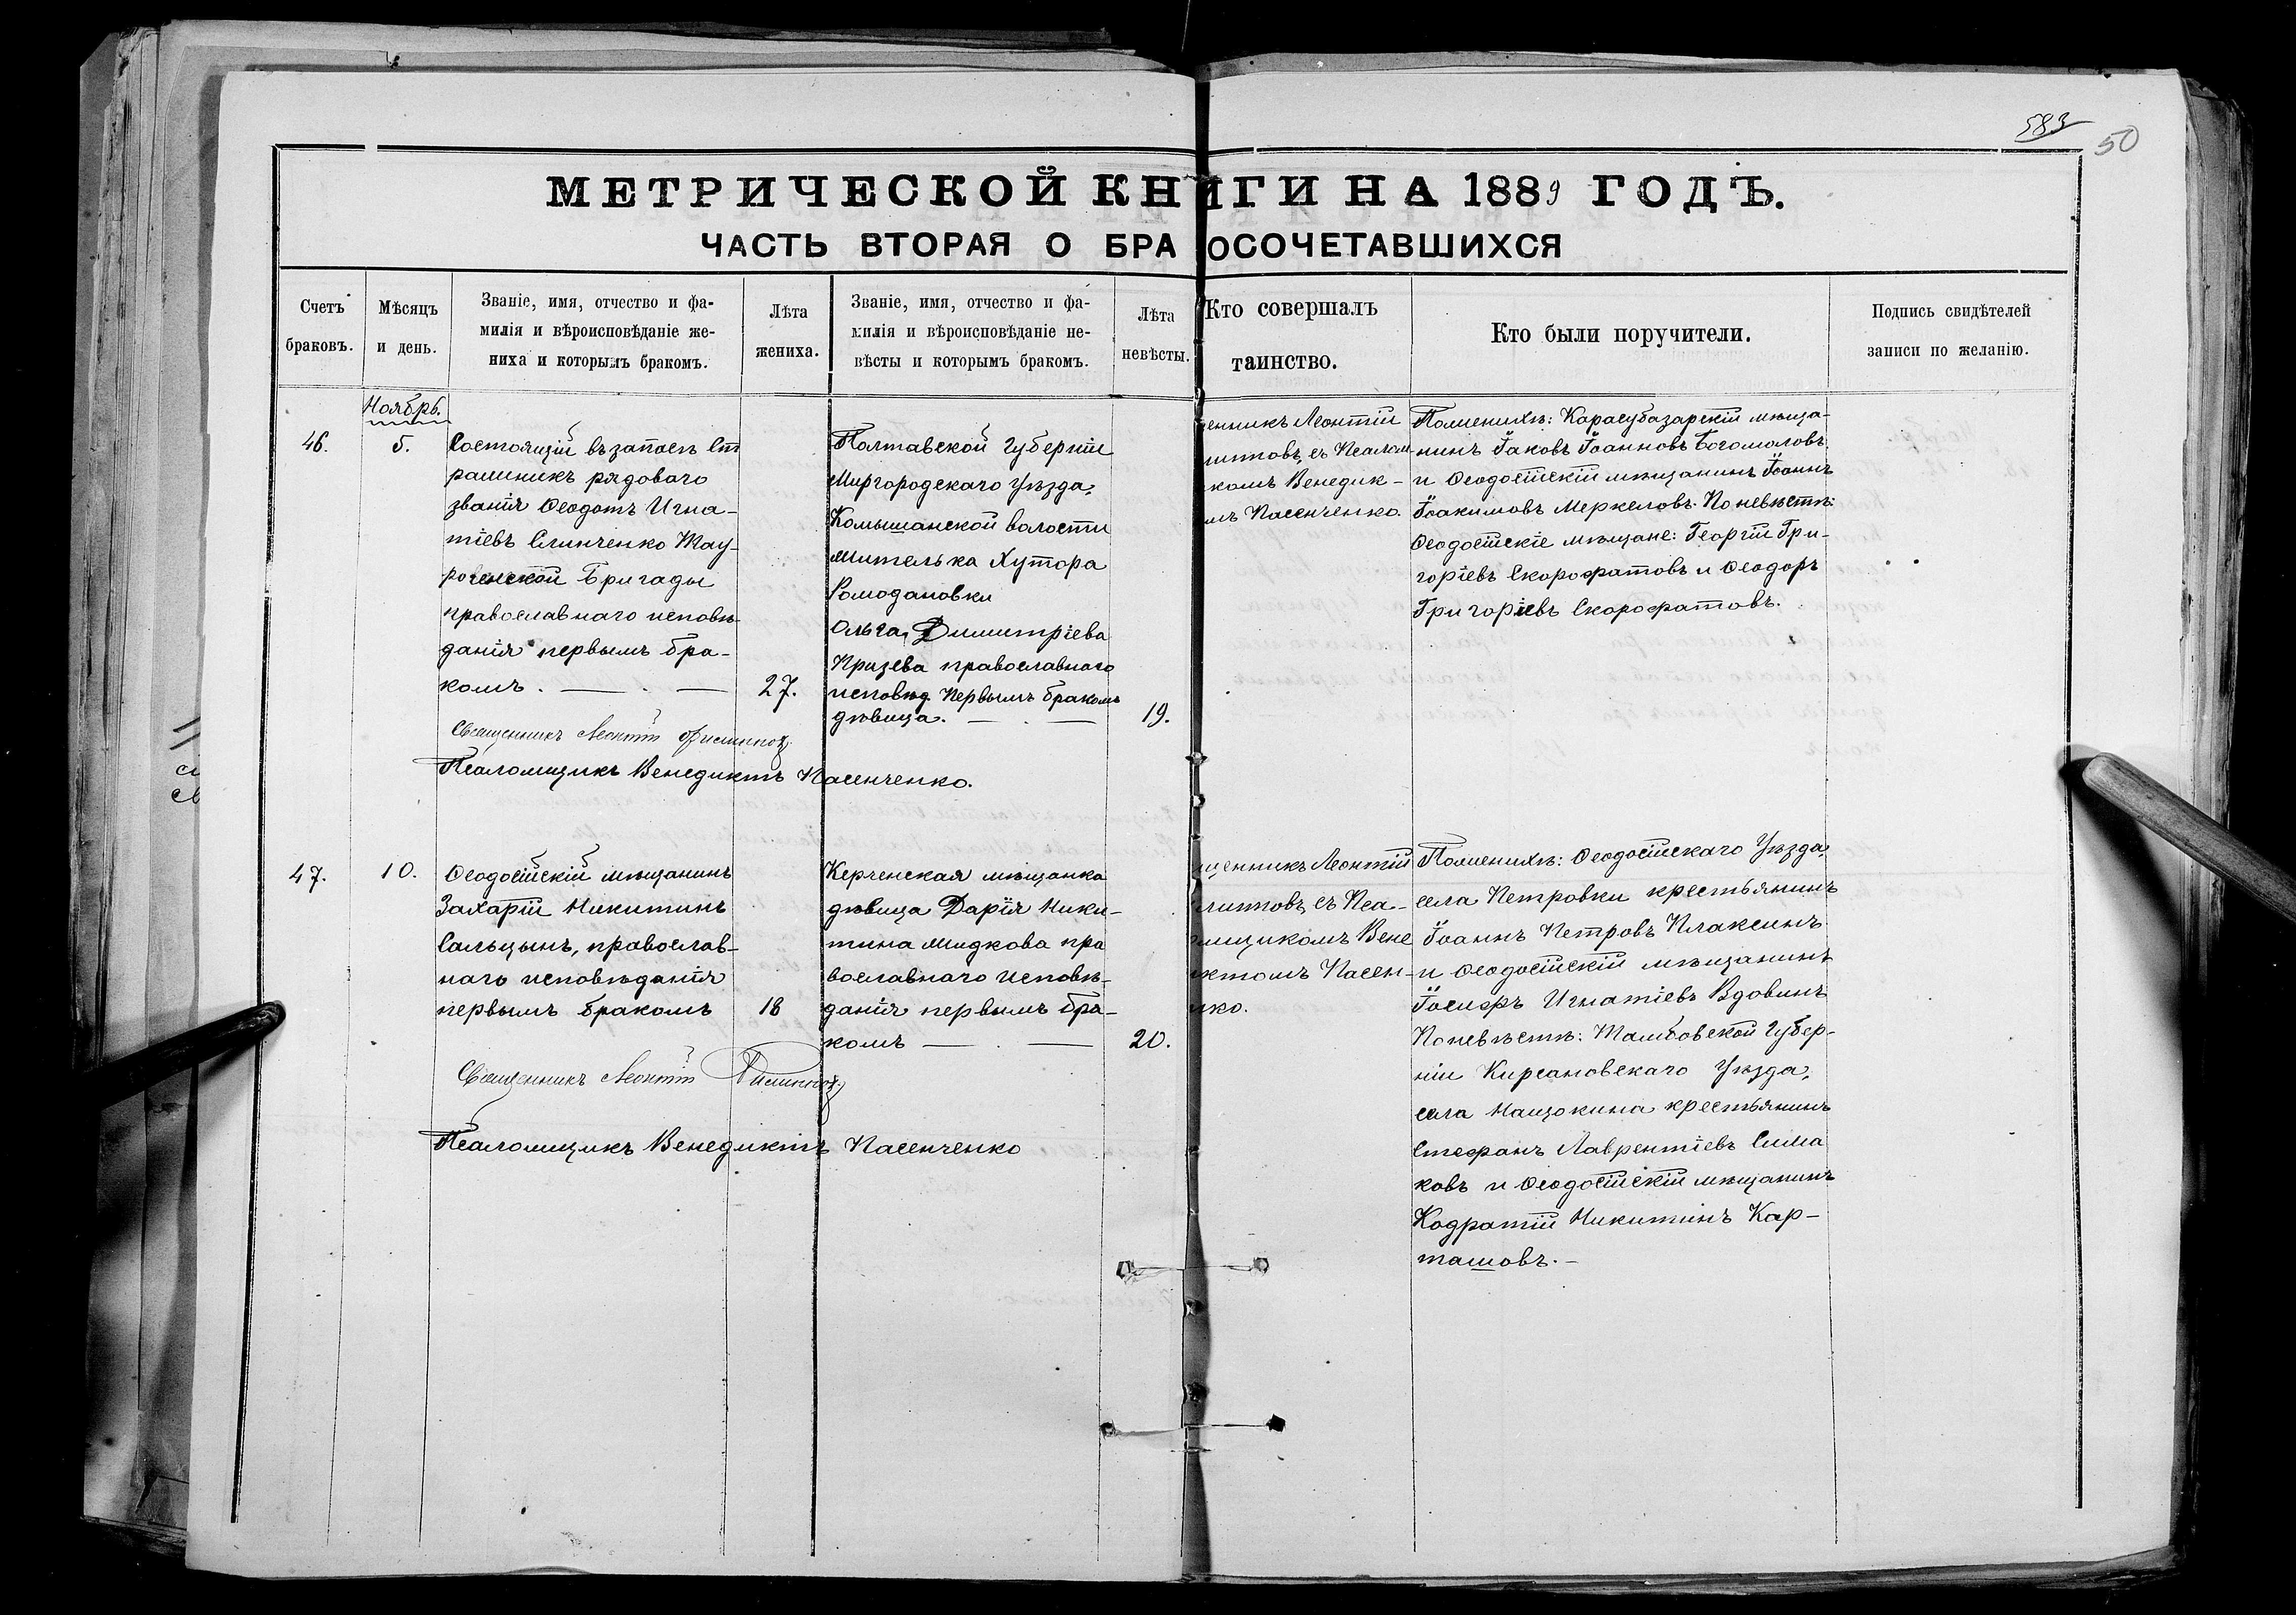 583
50
МЕТРИЧЕСКОЙ КНИГИ НА 1889 ГОДЪ.
ЧАСТЬ ВТОРАЯ О БРАКОСОЧЕТАВШИХСЯ
Счетъ браковъ.
Мѣсяцъ и день.
Званіе, имя, отчество и фа-
милія и вѣроисповѣданіе же-
ниха и которымъ бракомъ.
Лѣта жениха.
Званіе, имя, отчество и фа-
милія и вѣроисповѣданіе не-
вѣсты и которымъ бракомъ.
Лѣта невѣсты.
Кто совершалъ
таинство.
Кто были поручители.
Подпись свидѣтелей
записи по желанію.
Ноябрь.
46.
5.
Состоящій въ запасѣ Ст
рашникъ рядоваго
званія Ѳеодотъ Игна-
тіевъ Слинченко
Бригады
православнаго исповѣ-
данія первымъ бра-
комъ.
27.
Полтавской Губерніи
Миргородскаго Уѣзда,
Комышанской волости
жителька Хутора
Ромодановки
Ольга Димитріева
Призева православнаго
исповѣд. первымъ бракомъ
дѣвица.
19.
енникъ Леонтій
иповъ, съ Псалом
комъ Венедик-
мъ Пасенченко.
По женихѣ: Карасубазарскій мѣща-
нинъ Іаковъ Іоанновъ Богомоловъ
и Ѳеодосійскій мѣщанинъ Іоаннъ
Іоакимовъ Меркеловъ. По невѣстѣ:
Ѳеодосійскіе мѣщане: Георгій Гри-
горіевъ Скорофатовъ и Ѳеодоръ
Григоріевъ Скорофатовъ.
Священникъ Леонтій Филиповъ
Псаломщикъ Венедиктъ Пасенченко.
47.
10.
Ѳеодосійскій мѣщанинъ
Захарій Никитинъ
Сальцынъ, православ-
наго исповѣданія
первымъ бракомъ
18
Керченская мѣщанка
дѣвица Дарія Ники-
тина Мидкова пра
вославнаго исповѣ-
данія первымъ бра-
комъ
20.
щенникъ Леонтій
липповъ, съ Пса-
мщикомъ Вене
ктомъ Пасен-
нко.
По женихѣ: Ѳеодосійскаго Уѣзда,
села Петровки крестьянинъ
Іоаннъ Петровъ Плаксинъ
и Ѳеодосійскій мѣщанинъ
Іосифъ Игнатіевъ Вдовинъ
По невѣстѣ: Тамбовской Губер-
ніи Кирсановскаго Уѣзда,
села Нащокина крестьянинъ
Стефанъ Лаврентіевъ Сима
ковъ и Ѳеодосійскій мѣщанинъ
Кодратій Никитинъ Кар-
ташовъ.
Священникъ Леонтій Филиповъ
Псаломщикъ Венедиктъ Пасенченко